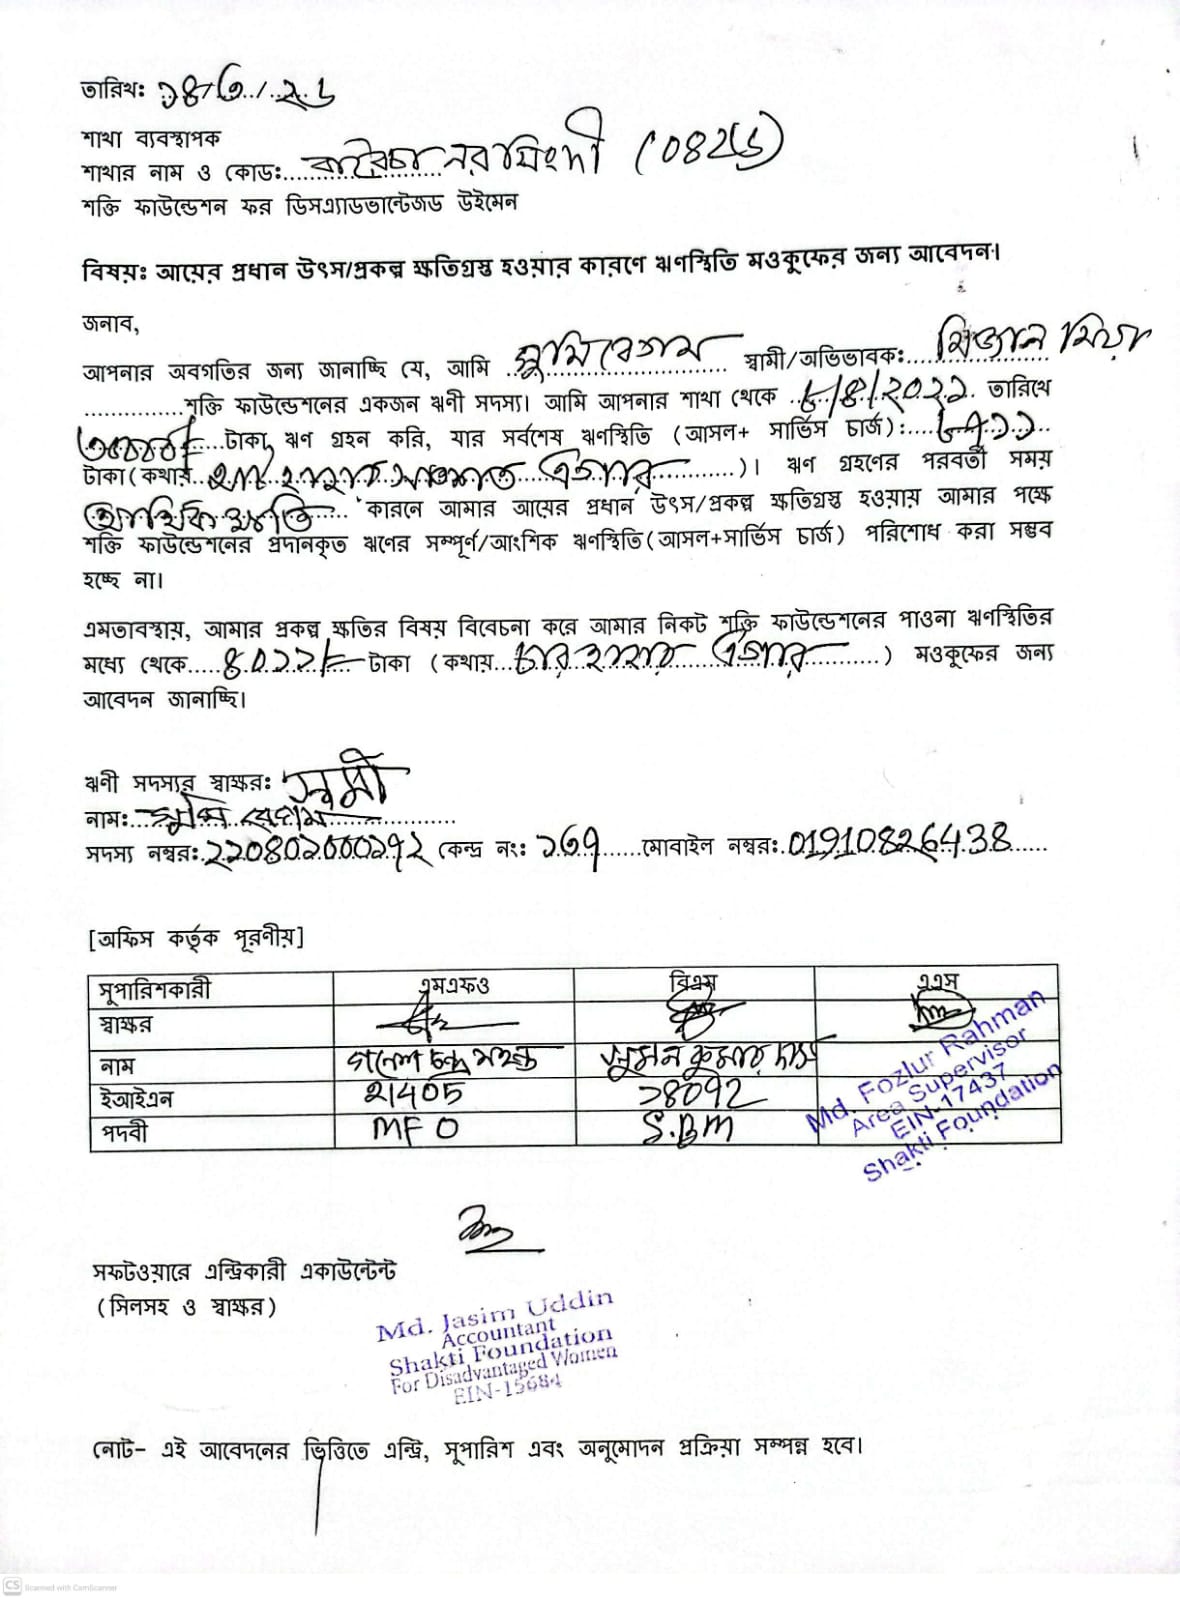 তারিখ: ১৪/৩/২৬
শাখা ব্যবস্থাপক
শাখার নাম ও কোড: বারৈচা নরসিংদী (0826)
শক্তি ফাউন্ডেশন ফর ডিসএ্যাডভান্টেজড উইমেন
বিষয়: আয়ের প্রধান উৎস/প্রকল্প ক্ষতিগ্রস্ত হওয়ার কারণে ঋণস্থিতি মওকুফের জন্য আবেদন।
জনাব,
আপনার অবগতির জন্য জানাচ্ছি যে, আমি সুমি বেগম স্বামী/অভিভাবক: মিজান মিয়া
শক্তি ফাউন্ডেশনের একজন ঋণী সদস্য। আমি আপনার শাখা থেকে ৮/৪/২০২২ তারিখে
টাকা ঋণ গ্রহন করি, যার সর্বশেষ ঋণস্থিতি (আসল+ সার্ভিস চার্জ):
টাকা (কথায় হাজার সাতশত এগার)। ঋণ গ্রহণের পরবর্তী সময়
আর্থিক ক্ষতি কারনে আমার আয়ের প্রধান উৎস/প্রকল্প ক্ষতিগ্রস্ত হওয়ায় আমার পক্ষে
শক্তি ফাউন্ডেশনের প্রদানকৃত ঋণের সম্পূর্ণ/আংশিক ঋণস্থিতি (আসল+সার্ভিস চার্জ) পরিশোধ করা সম্ভব
হচ্ছে না।
এমতাবস্থায়, আমার প্রকল্প ক্ষতির বিষয় বিবেচনা করে আমার নিকট শক্তি ফাউন্ডেশনের পাওনা ঋণস্থিতির
মধ্যে থেকে ৪০১১/= টাকা (কথায় চার হাজার এগার) মওকুফের জন্য
আবেদন জানাচ্ছি।
ঋণী সদস্যর স্বাক্ষর: সুমী
নাম: সুমি বেগম
সদস্য নম্বর: ২২0৪0২000১৭২ কেন্দ্র নং: ১৩৭ মোবাইল নম্বর: 01910826438
[অফিস কর্তৃক পূরণীয়]
সুপারিশকারী এমএফও বিএম এএস
স্বাক্ষর
নাম গনেশ চন্দ্র মহন্ত সুমন কুমার দাস
ইআইএন ২1405 ১৪০৭২
পদবী MFO S.BM
Md. Fozlur Rahman
Area Supervisor
EIN-17437
Shakti Foundation
সফটওয়ারে এন্ট্রিকারী একাউন্টেন্ট
(সিলসহ ও স্বাক্ষর)
Md. Jasim Uddin
Accountant
Shakti Foundation
For Disadvantaged Women
EIN-15684
নোট- এই আবেদনের ভিত্তিতে এন্ট্রি, সুপারিশ এবং অনুমোদন প্রক্রিয়া সম্পন্ন হবে।
CS Scanned with CamScanner